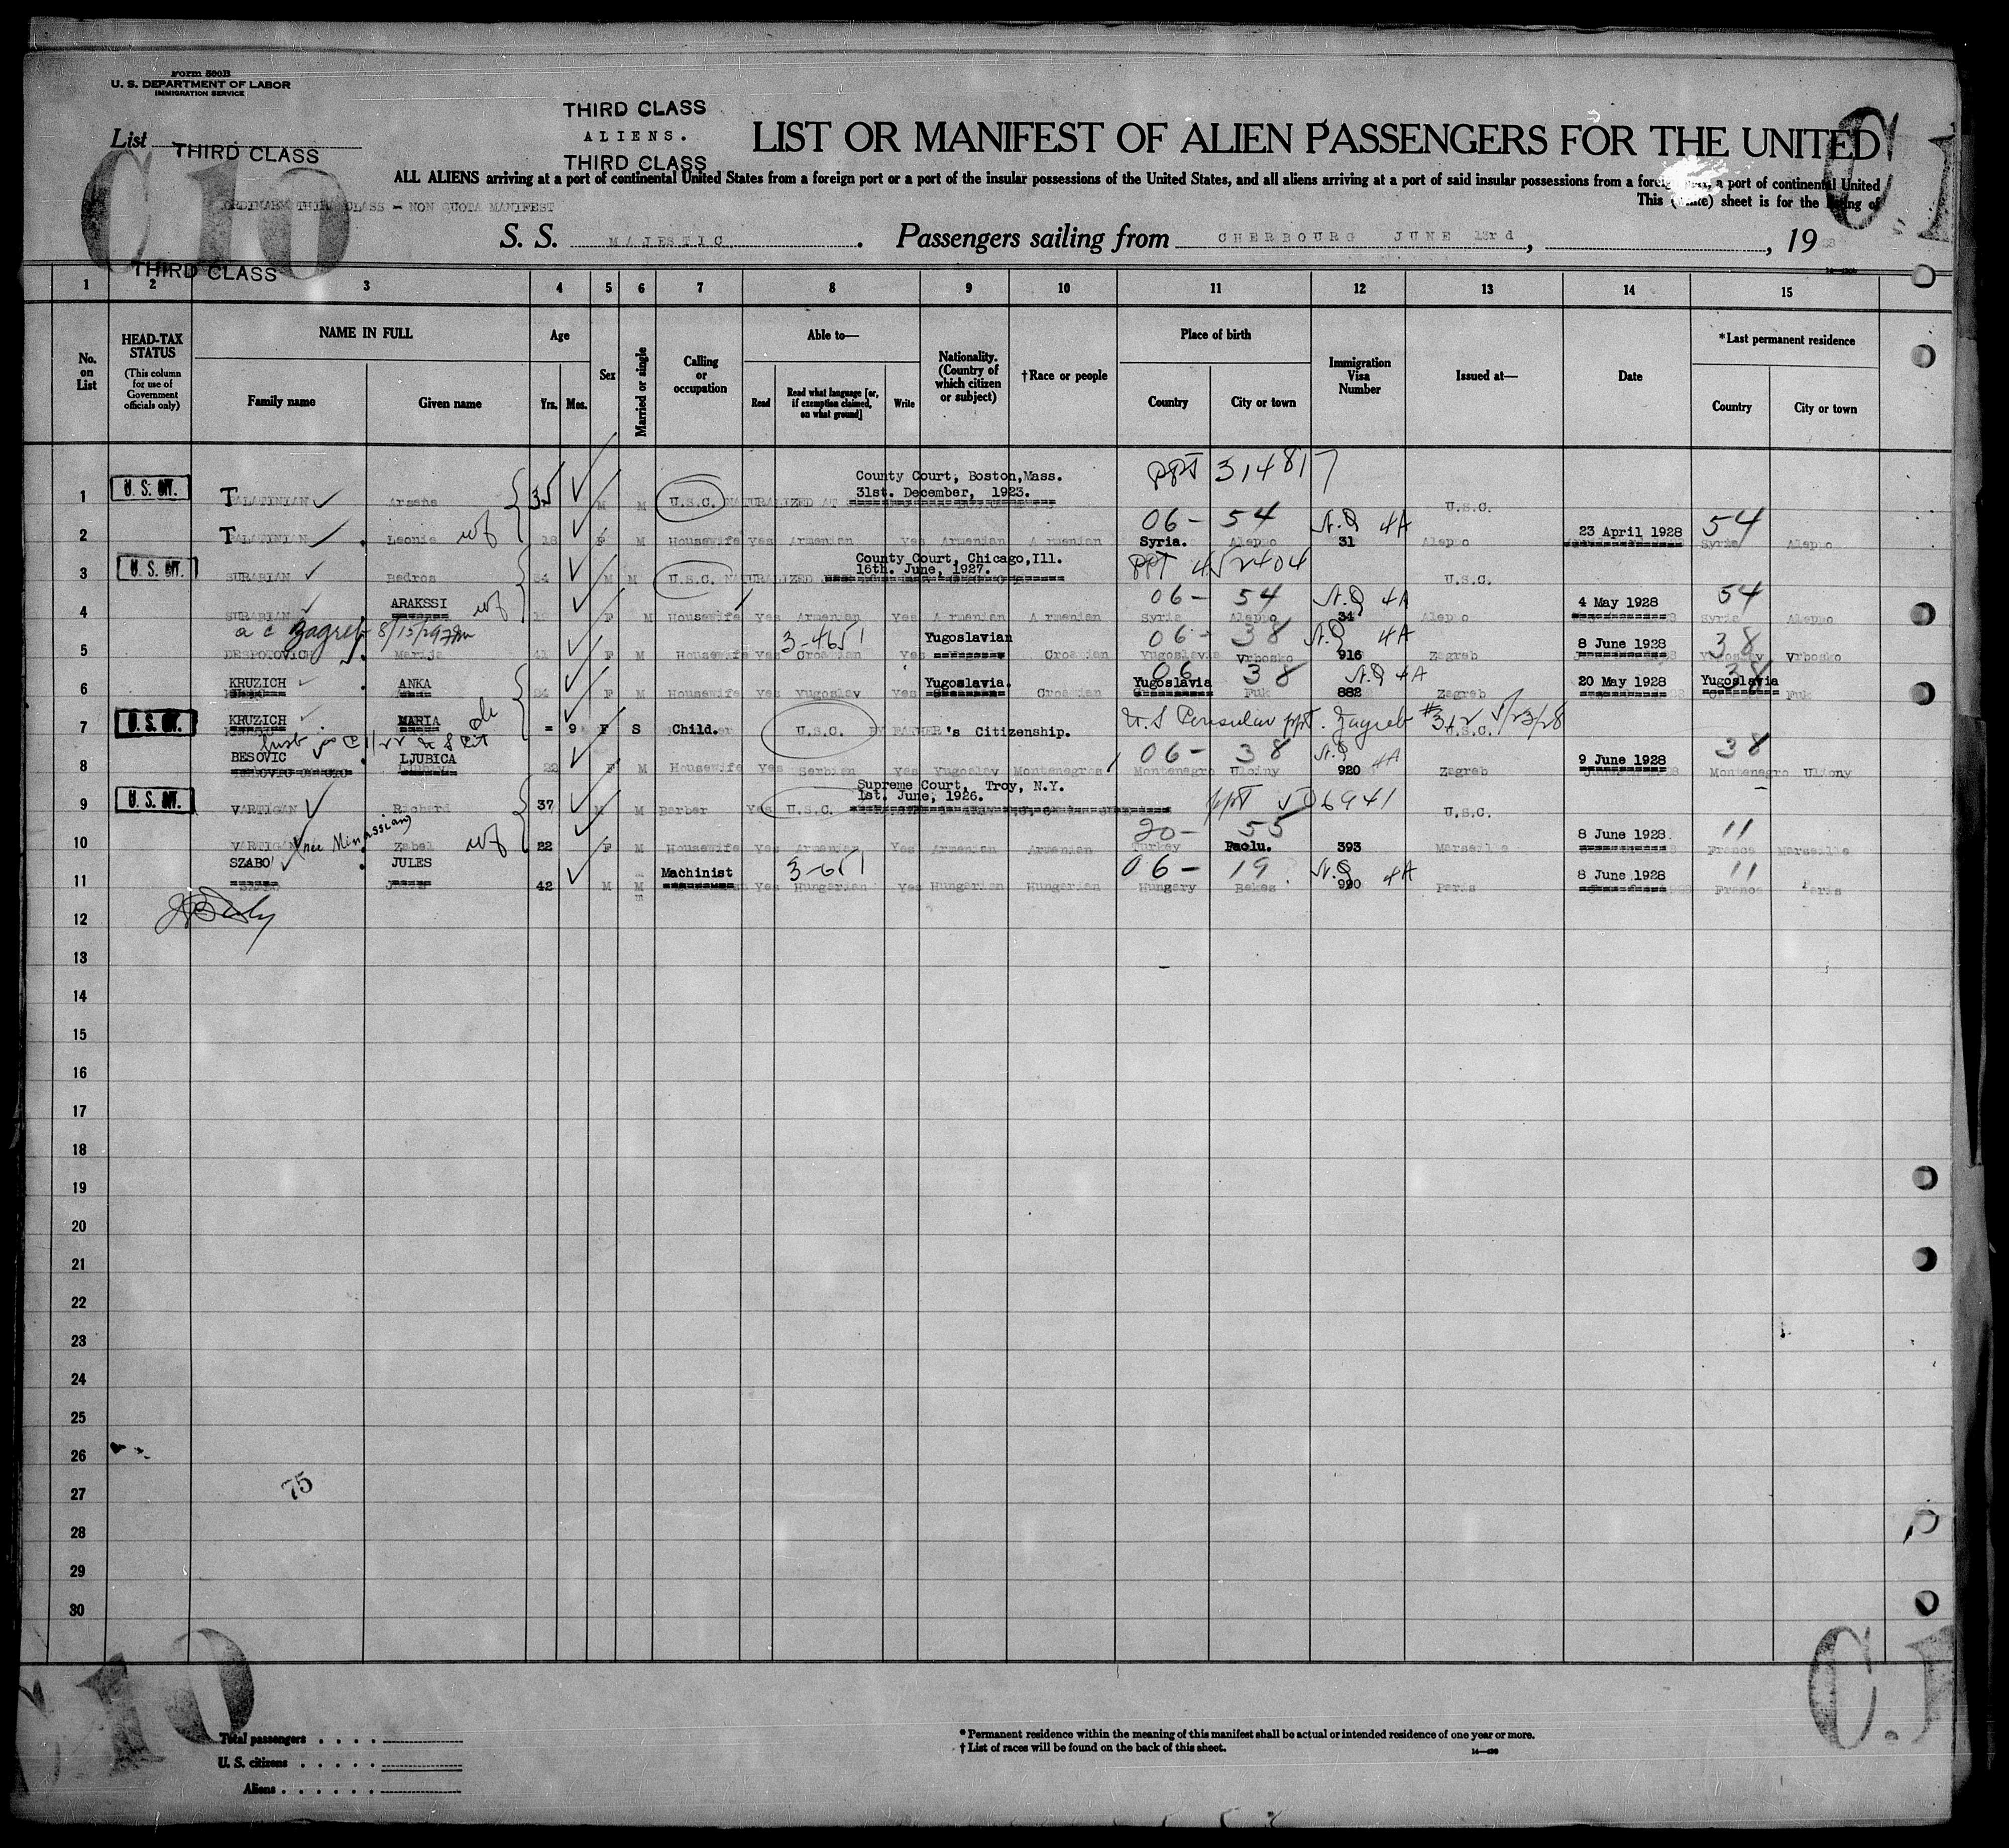 Form 500B
U. S. DEPARTMENT OF LABOR
IMMIGRATION SERVICE
THIRD CLASS
ALIENS.
THIRD CLASS
List THIRD CLASS
LIST OR MANIFEST OF ALIEN PASSENGERS FOR THE UNITED
C 10
C.1
ALL ALIENS arriving at a port of continental United States from a foreign port or a port of the insular possessions of the United States, and all aliens arriving at a port of said insular possessions from a foreign port, a port of continental United
This (white) sheet is for the listing of
ORDINARY THIRD CLASS - NON QUOTA MANIFEST
S. S. MAJESTIC . Passengers sailing from CHERBOURG JUNE 13rd , , 19 28
THIRD CLASS
1 2 3 4 5 6 7 8 9 10 11 12 13 14 15
No. on List
HEAD-TAX STATUS (This column for use of Government officials only)
NAME IN FULL
Family name Given name
Age
Yrs. Mos.
Sex
Married or single
Calling or occupation
Able to—
Read Read what language [or, if exemption claimed, on what ground] Write
Nationality. (Country of which citizen or subject)
†Race or people
Place of birth
Country City or town
Immigration Visa Number
Issued at—
Date
*Last permanent residence
Country City or town
County Court, Boston, Mass. PPT 314817
1 U. S. CIT. TALATINIAN Arsene 35 M M U.S.C. NATURALIZED AT 31st. December, 1923. U.S.C.
06 - 54 N.Q 4A 54
2 TALATINIAN Leonie wf 18 F M Housewife Yes Armenian Yes Armenian Armenian Syria. Aleppo 31 Aleppo 23 April 1928 Syria Aleppo
County Court, Chicago, Ill. PPT 452404
3 U. S. CIT. SURABIAN Bedros M M U.S.C. NATURALIZED 16th. June, 1927. U.S.C.
ARAKSSI wf 06 - 54 N.Q 4A 54
4 SURABIAN F M Housewife Yes Armenian Yes Armenian Armenian Syria Aleppo 34 Aleppo 4 May 1928 Syria Aleppo
a c Zagreb 8/15/29 3-4651 Yugoslavian 06 - 38 N.Q 4A 38
5 DESPOTOVICH Marija 41 F M Housewife Yes Croatian Yes Croatian Yugoslavia Vrbosko 916 Zagreb 8 June 1928 Yugoslav Vrbosko
KRUZICH ANKA Yugoslavia. 06 38 N.Q 4A 38
6 F M Housewife Yes Yugoslav Yes Croatian Yugoslavia Fuk 882 Zagreb 20 May 1928 Yugoslavia Fuk
7 U. S. CIT. KRUZICH MARIA - 9 F S Child. U.S.C. BY FATHER's Citizenship. U S Consular ppt. Zagreb #312 5/23/28 U.S.C.
BESOVIC LJUBICA 06 - 38 N.Q 4A 38
8 22 F M Housewife Yes Serbian Yes Yugoslav Montenegros Montenegro Ulciny 920 Zagreb 9 June 1928 Montenegro Ulciny
Supreme Court, Troy, N.Y.
9 U. S. CIT. VARTIGAN Richard 37 M M Barber Yes U.S.C. 1st. June, 1926. ppt 506941 U.S.C.
(nee Minassian) wf 20 - 55 11
10 VARTIGAN Zabel 22 F M Housewife Yes Armenian Yes Armenian Armenian Turkey Paolu. 393 Marseille 8 June 1928 France Marseille
SZABO' JULES Machinist 3-651 06 - 19 N.Q 4A 11
11 42 M M Yes Hungarian Yes Hungarian Hungarian Hungary Bekes 990 Paris 8 June 1928 France Paris
12
13
14
15
16
17
18
19
20
21
22
23
24
25
26
27
28
29
30
75
C 10
C.1
Total passengers . . . .
U. S. citizens . . . . .
Aliens . . . . . .
* Permanent residence within the meaning of this manifest shall be actual or intended residence of one year or more.
† List of races will be found on the back of this sheet.
14—430